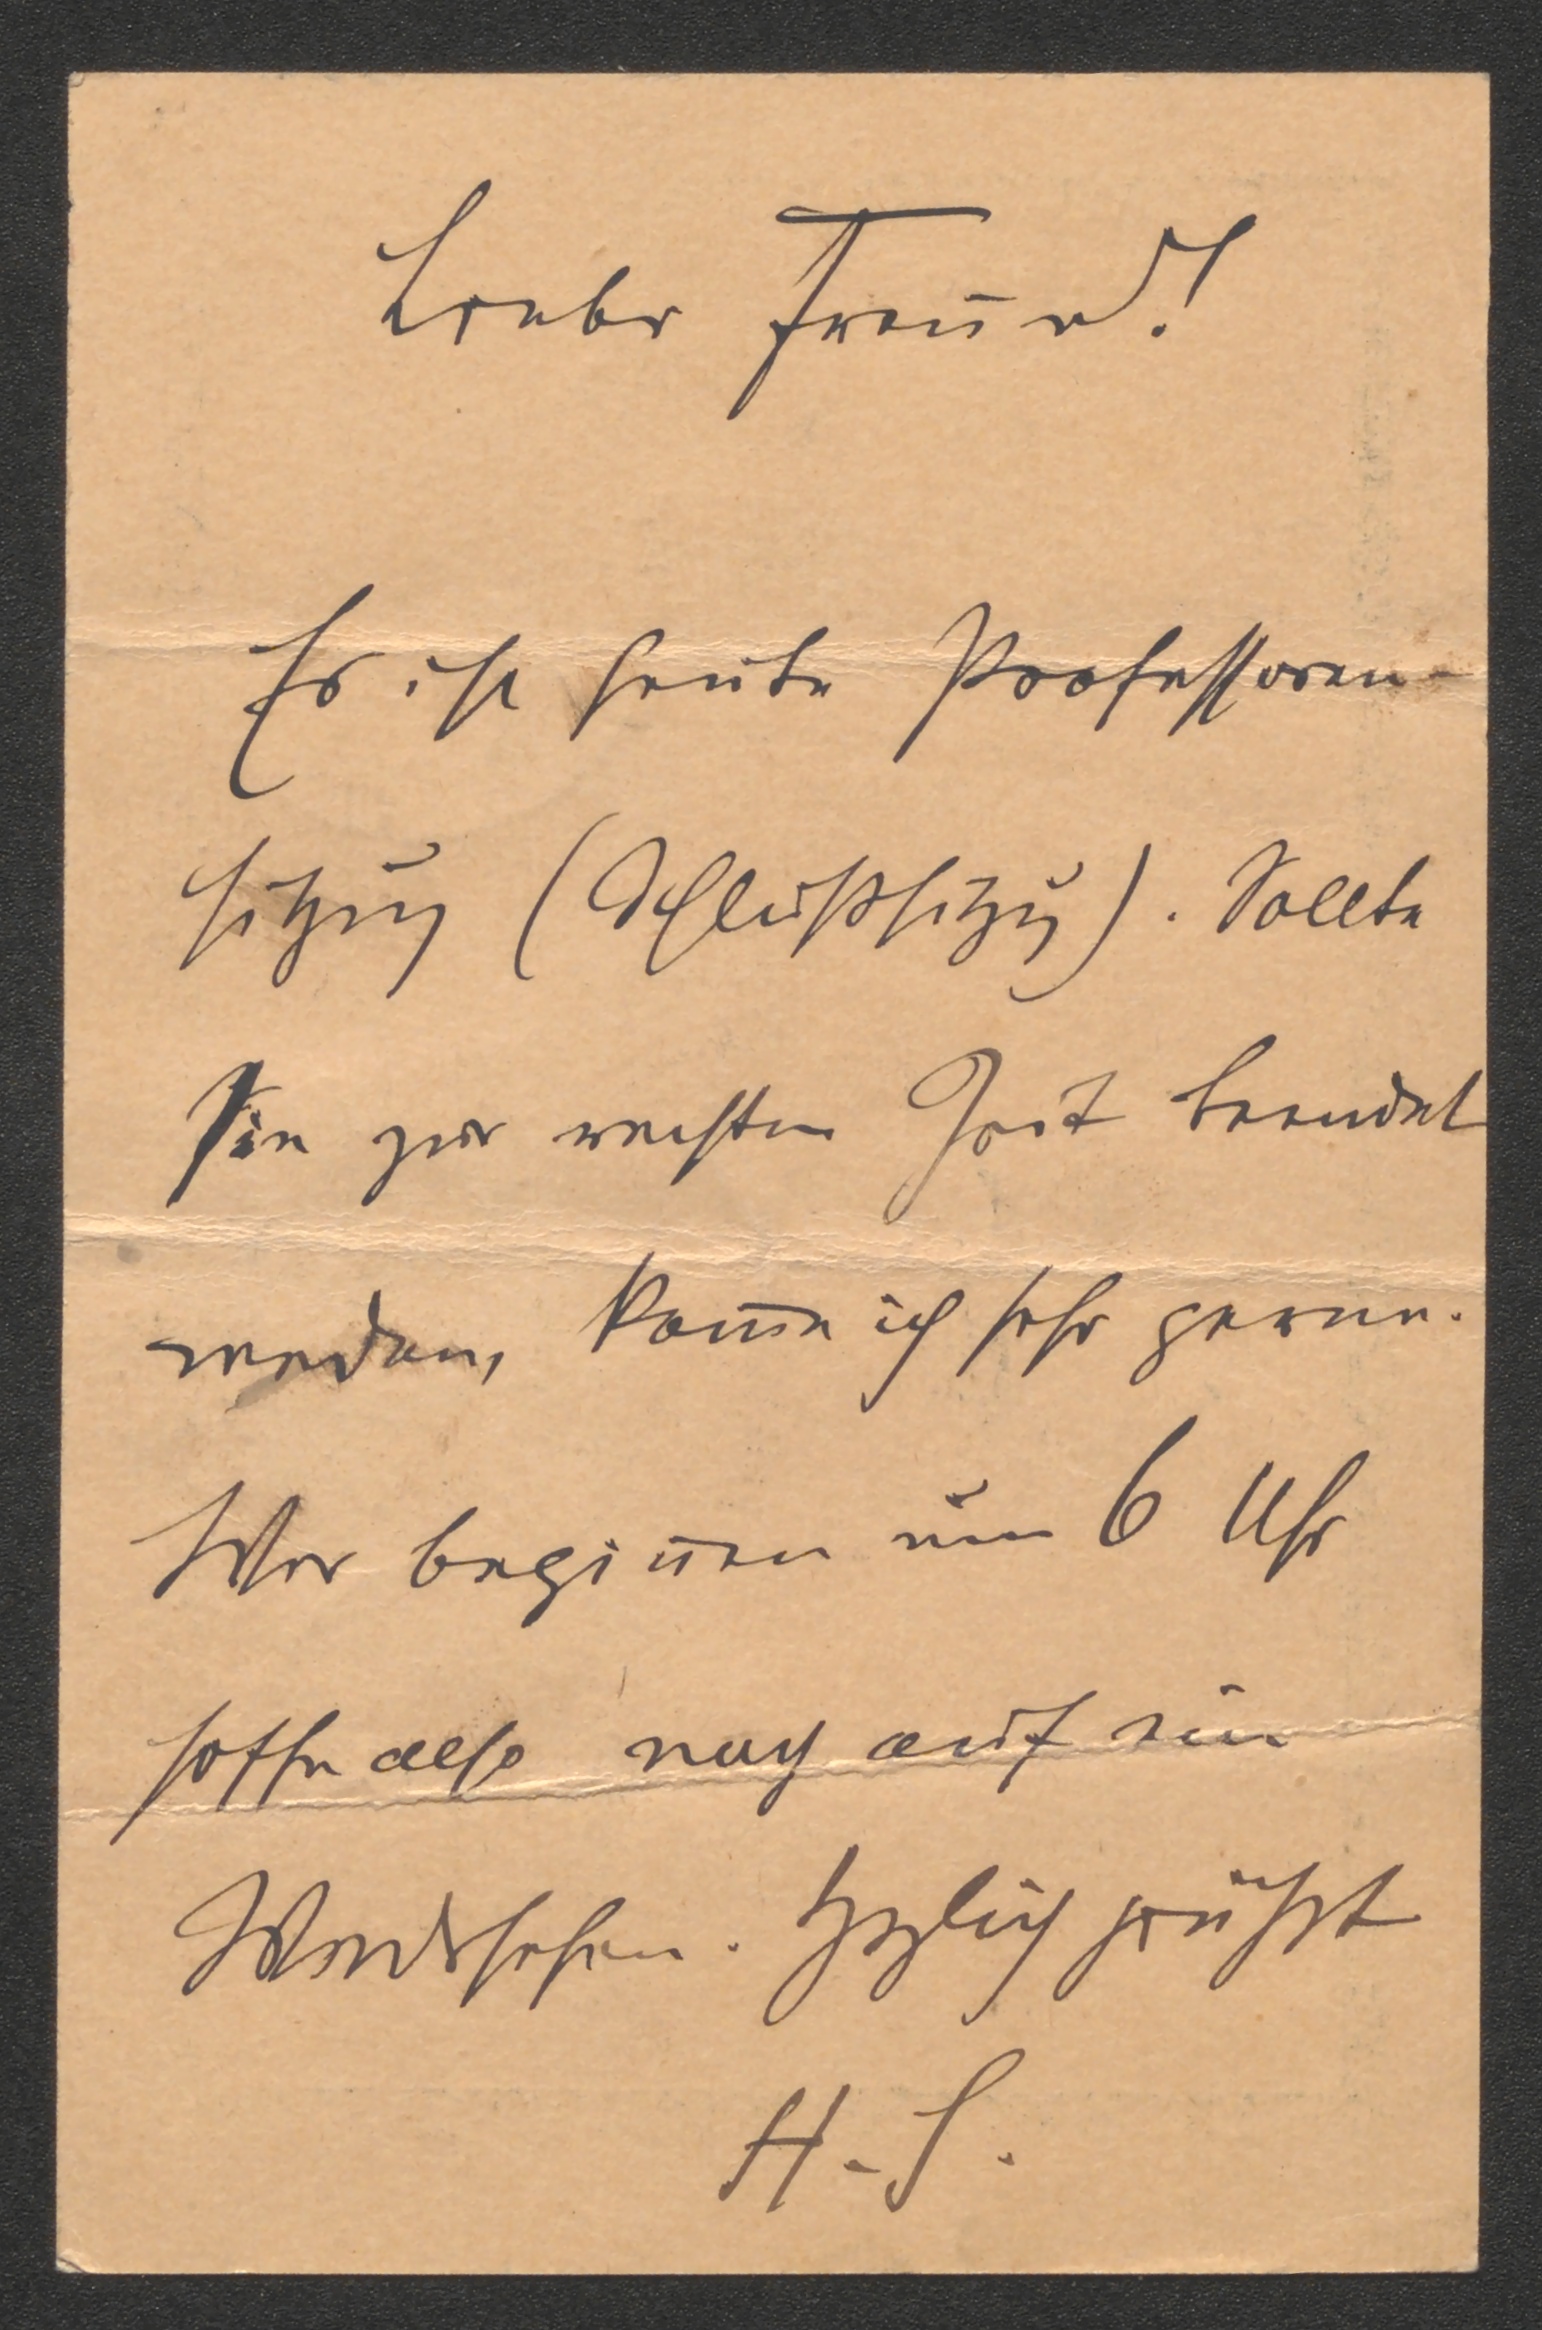 Lieber Freund!
Es ist heute Professoren-
sitzung (Schlußsitzung). Sollte
Sie zur rechten Zeit beendet
werden, kom̅e ich sehr gerne.
Wir begin̅en um 6 Uhr
hoffe also noch auf ein
Wiedersehen. Hzlich grüßt
H. S.